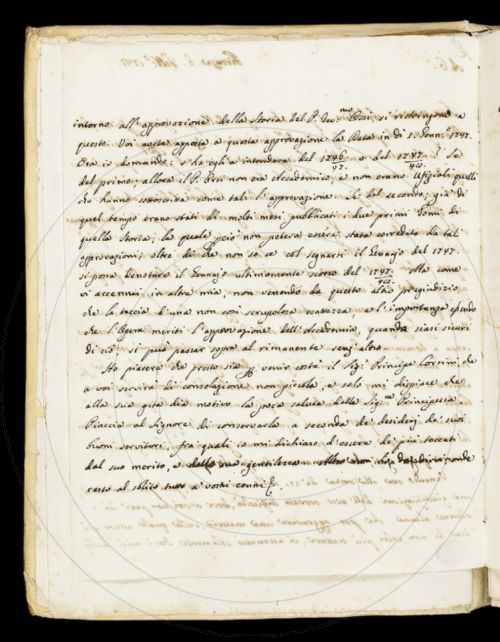 intorno all'approvazione della Storia del P. Bini, si ristringono a
questo. Voi avete apposta a questa approvazione la Data in di 1. Genn.º 1747.
Ora io domando: s'ha egli a intendere del 1746/47. o del 1747/48? Se
del primo, allora il P. Bini non era Accademico, e non erano Ufiziali quelli
che hanno sottoscritta come tali l'approvazione. Se del secondo, già di
quel tempo erano stati di molti mesi pubblicati i due primi Tomi di
quella Storia, la quale perciò non poteva essere stata corredata di tali
approvazioni, oltre di che non so se col segnarsi il Gennajo del 1747.
si possa denotare il Gennajo ultimamente scorso del 1747/48. Ma come
vi accennai in altra mia, non venendo da questo altro pregiudizio
che la taccia d'una non così scrupolosa esattezza, e l'importanza essendo
che l'Opera meriti l'approvazione dell'Accademia, quando siasi sicuri
di ciò, si può passar sopra al rimanente senz'altro.
Ho piacere che presto sia per venir costà il Sig.r Principe Corsini, che
a voi servirà di consolazione non piccola, e solo mi dispiace che
alla sua gita dia motivo la poca salute della Sig.ra Principessa
Piaccia al Signore di conservarla a seconda de' desiderj de' suoi
buoni servitori, fra quali io mi dichiaro d'essere de' più toccati
dal suo merito, e della sua gentilezza.
resto al solito tutto a' vostri cenni